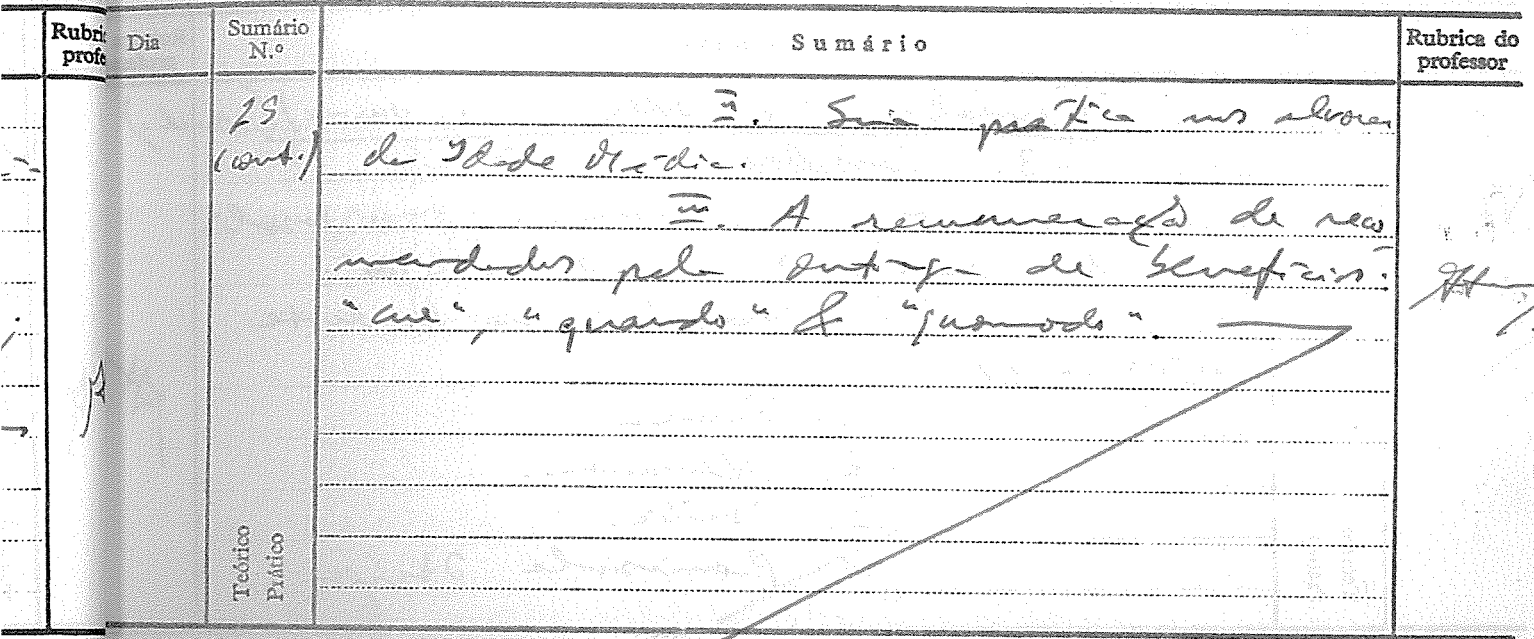 Rubri
profe
Dia
Sumário
N.º
Sumário
Rubrica do
professor
25
(cont.)
II. Sua prática nos alvores
da Idade Média.
III. A remuneração de reco-
mendados pela entrega de benefícios:
"cur", "quando" & "quomodo".
Teórico
Prático